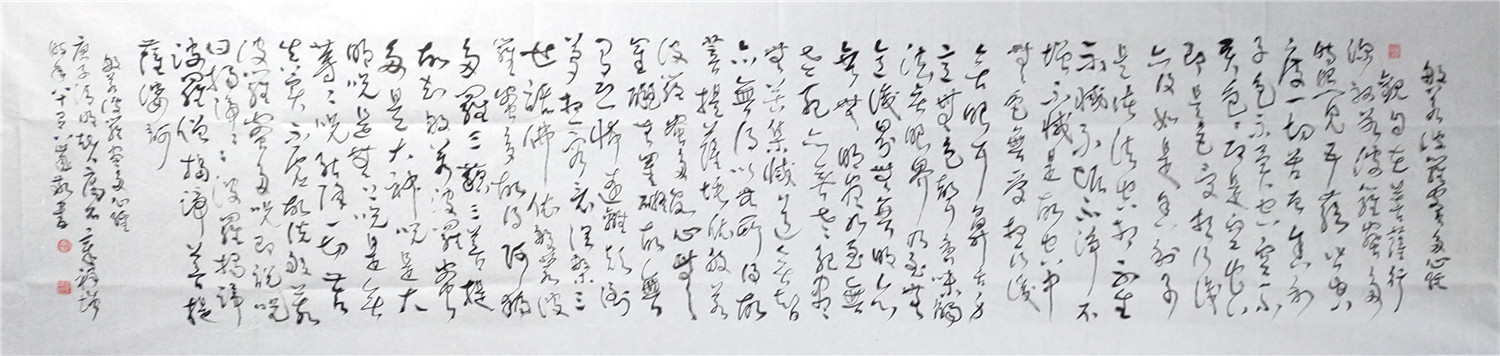 般若波羅蜜多心經
觀自在菩薩行
深般若波羅蜜多
時照見五蘊皆空
度一切苦厄舍利
子色不異空空不
異色色即是空空
即是色受想行識
亦復如是舍利子
是諸法空相不生
不滅不垢不淨不
增不減是故空中
無色無受想行識
無眼耳鼻舌身
意無色聲香味觸
法無眼界乃至無
意識界無無明亦
無無明盡乃至無
老死亦無老死盡
無苦集滅道無智
亦無得以無所得故
菩提薩埵依般若
波羅蜜多故心無
罣礙無罣礙故無
有恐怖遠離顛倒
夢想究竟涅槃三
世諸佛依般若波
羅蜜多故得阿耨
多羅三藐三菩提
故知般若波羅蜜
多是大神咒是大
明咒是無上咒是無
等等咒能除一切苦
真實不虛故說般若
波羅蜜多咒即說咒
曰揭諦揭諦波羅揭諦
波羅僧揭諦菩提
薩婆訶
般若波羅蜜多心經
庚子清明
時年八十有敬書